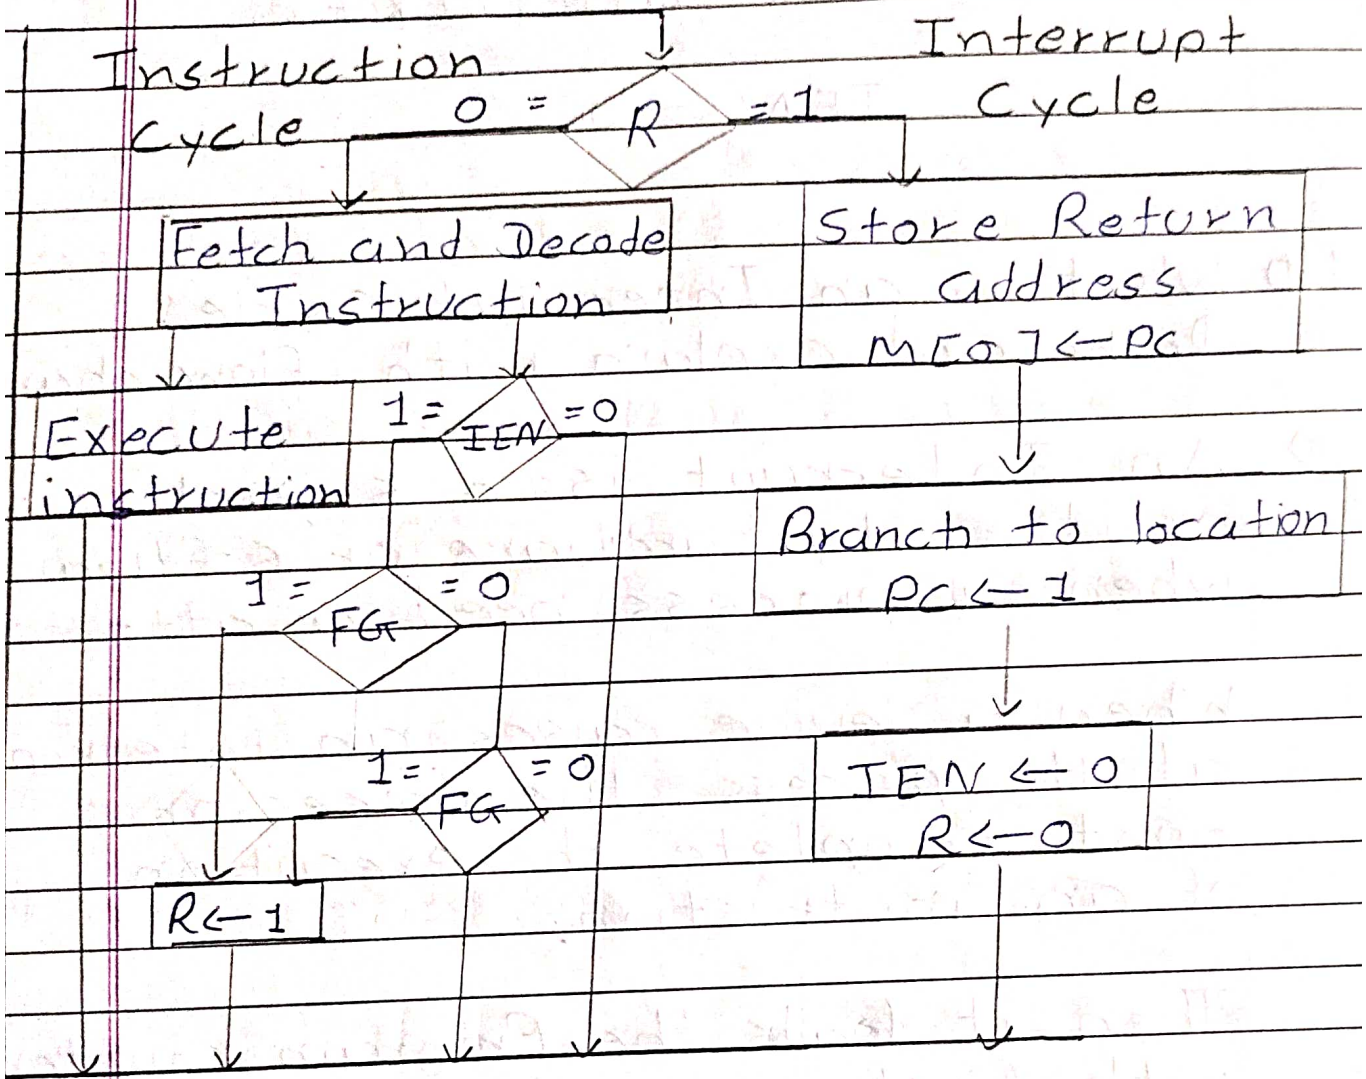 Instruction
Cycle
Interrupt
Cycle
0 =
R
= 1
Fetch and Decode
Instruction
Store Return
address
M[0] ← PC
Execute
instruction
1 =
IEN
= 0
Branch to location
PC ← 1
1 =
FG
= 0
1 =
FG
= 0
IEN ← 0
R ← 0
R ← 1